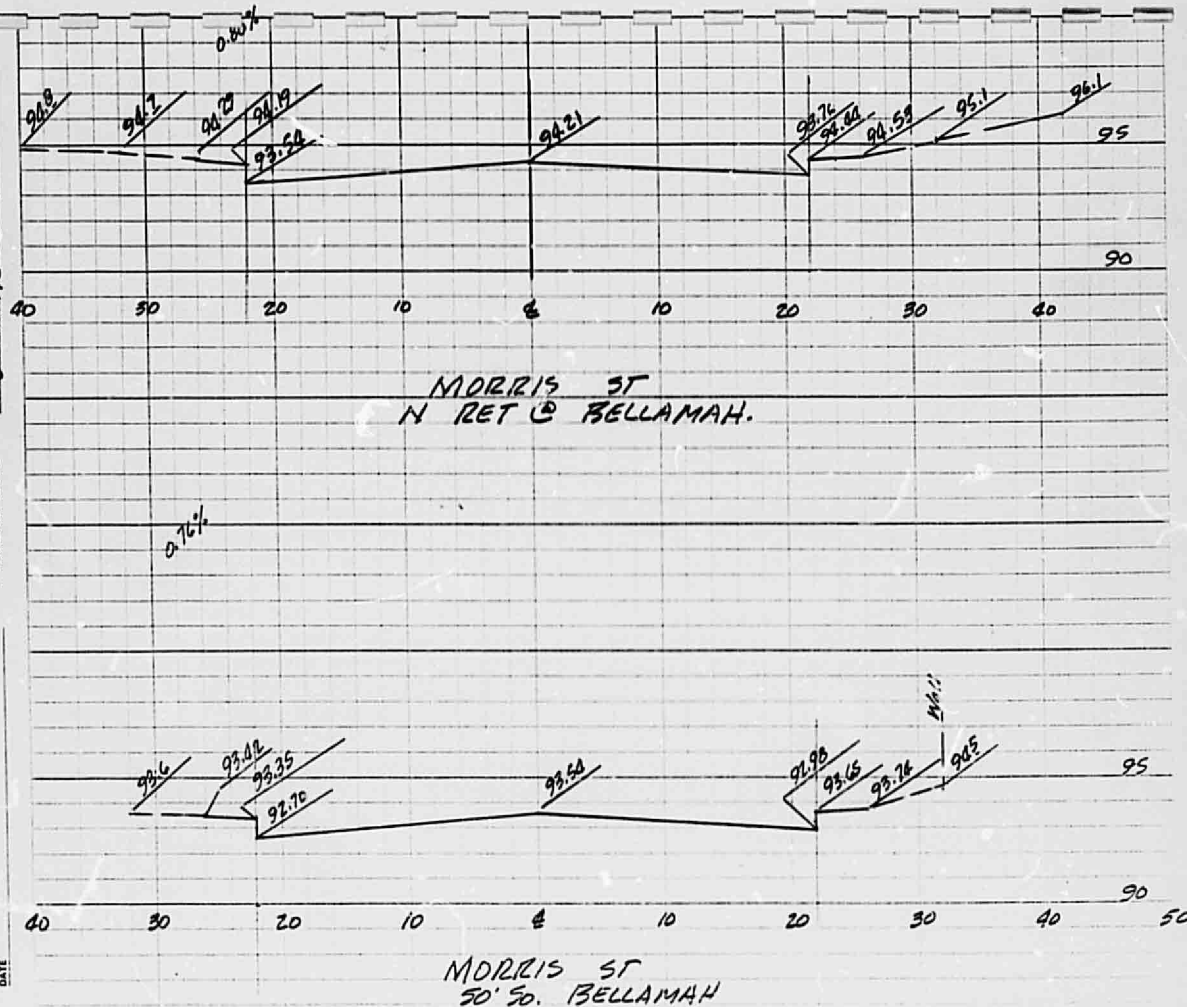 0.80%
94.8
94.7
94.29
94.19
93.54
94.21
93.76
94.44
94.53
95.1
96.1
95
90
40 30 20 10 ℄ 10 20 30 40
MORRIS ST
N RET @ BELLAMAH.
0.76%
Wall
93.6
93.42
93.35
92.70
93.54
92.98
93.65
93.74
94.5
95
90
40 30 20 10 ℄ 10 20 30 40 50
MORRIS ST
50' SO. BELLAMAH
DATE